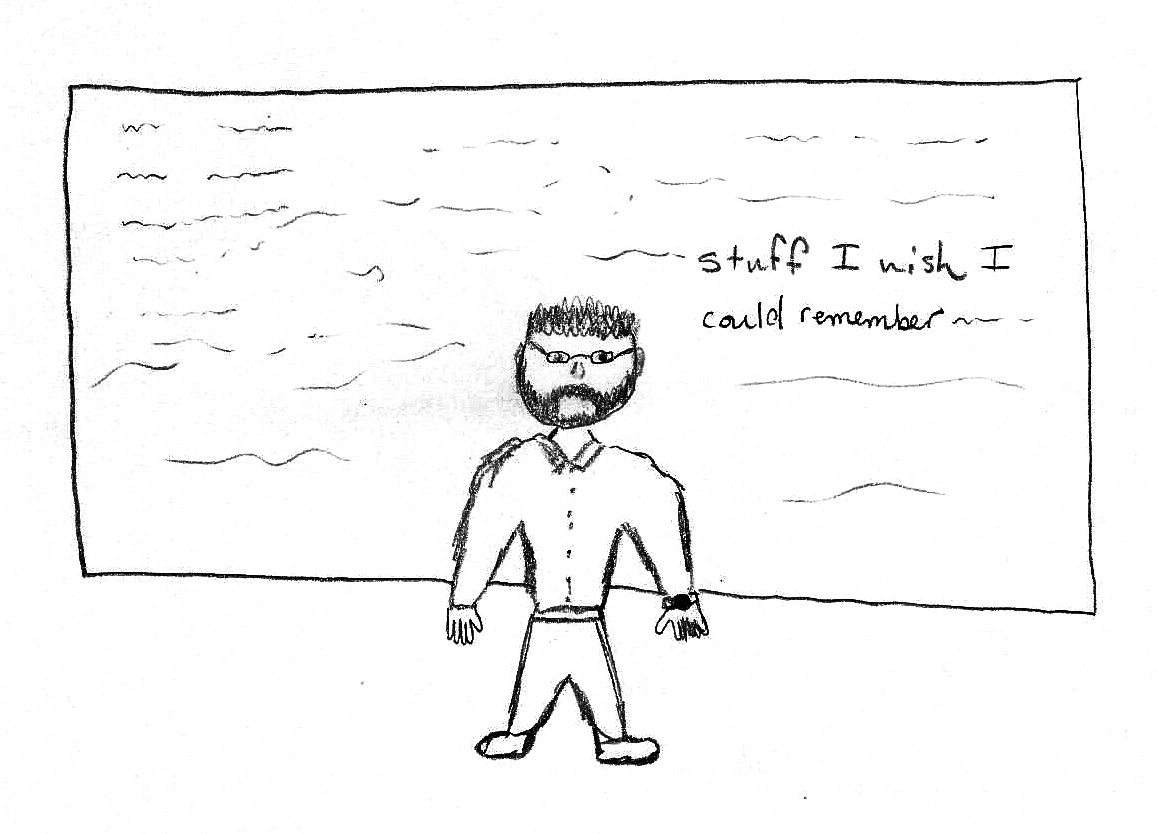 stuff I wish I
could remember